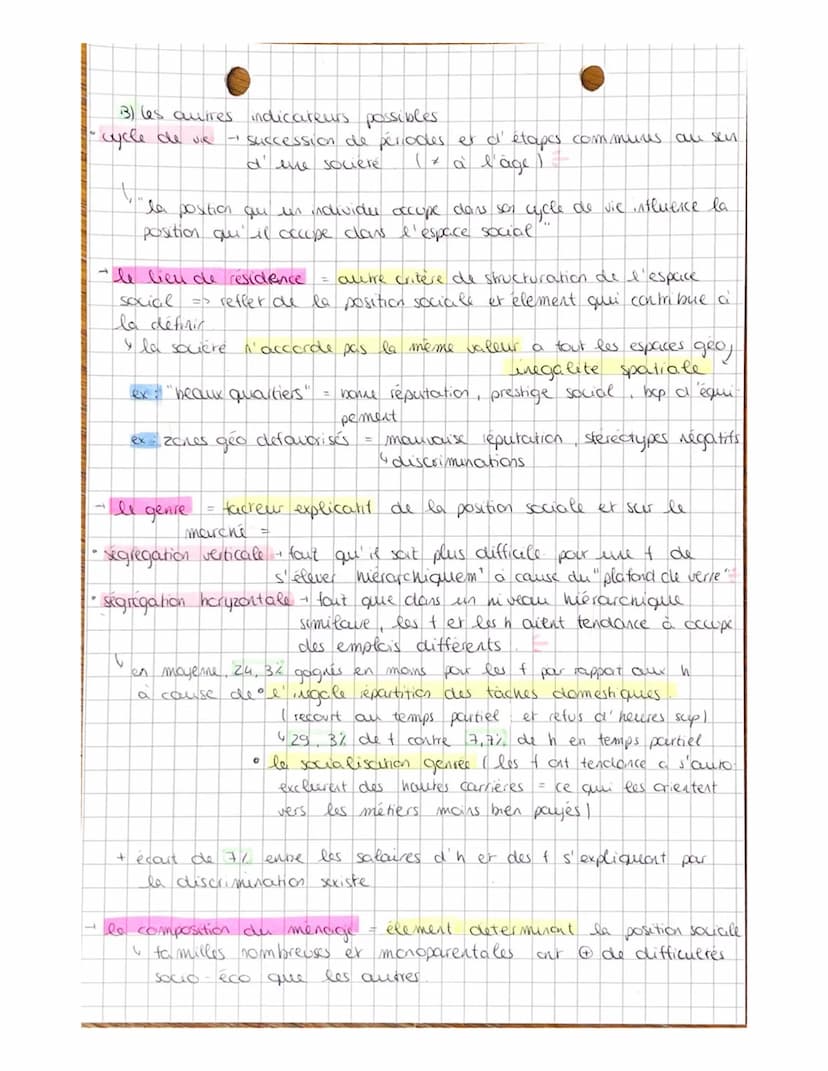 3) les autres indicateurs possibles
• cycle de vie → succession de périodes et d'étapes communes au sein
d'une société (≠ à l'âge)
↳ "la position qu'un individu occupe dans son cycle de vie influence la
position qu'il occupe dans l'espace social"
→ le lieu de résidence = autre critère de structuration de l'espace
social => reflet de la position sociale et élément qui contribue à
la définir
↳ la société n'accorde pas la même valeur a tout les espaces géo,
inégalité spatiale
ex: "beaux quartiers" = bonne réputation, prestige social, bcp d'équi-
pement
ex: zones géo défavorisés = mauvaise réputation, stéréotypes négatifs
↳ discriminations
→ le genre = facteur explicatif de la position sociale et sur le
marché =
• ségrégation verticale → fait qu'il soit plus difficile pour une f de
s'élever hiérarchiquem^t à cause du "plafond de verre"
• ségrégation horyzontale → fait que dans un niveau hiérarchique
similaire, les f et les h aient tendance à occupe
des emplois différents.
↳ en moyenne, 24,3% gagnés en moins pour les f par rapport aux h
à cause de • l'inégale répartition des tâches domestiques.
(recourt au temps partiel et refus d'heures sup)
↳ 29,3% de f contre 7,7% de h en temps partiel
• la socialisation genrée (les f ont tendance a s'auto-
exclurent des hautes carrières = ce qui les orientent
vers les métiers moins bien payés)
+ écart de 7% entre les salaires d'h et des f s'expliquent par
la discrimination sexiste
→ la composition du ménage = élément déterminant la position sociale
↳ familles nombreuses et monoparentales ont ⊕ de difficultés
socio-éco que les autres.